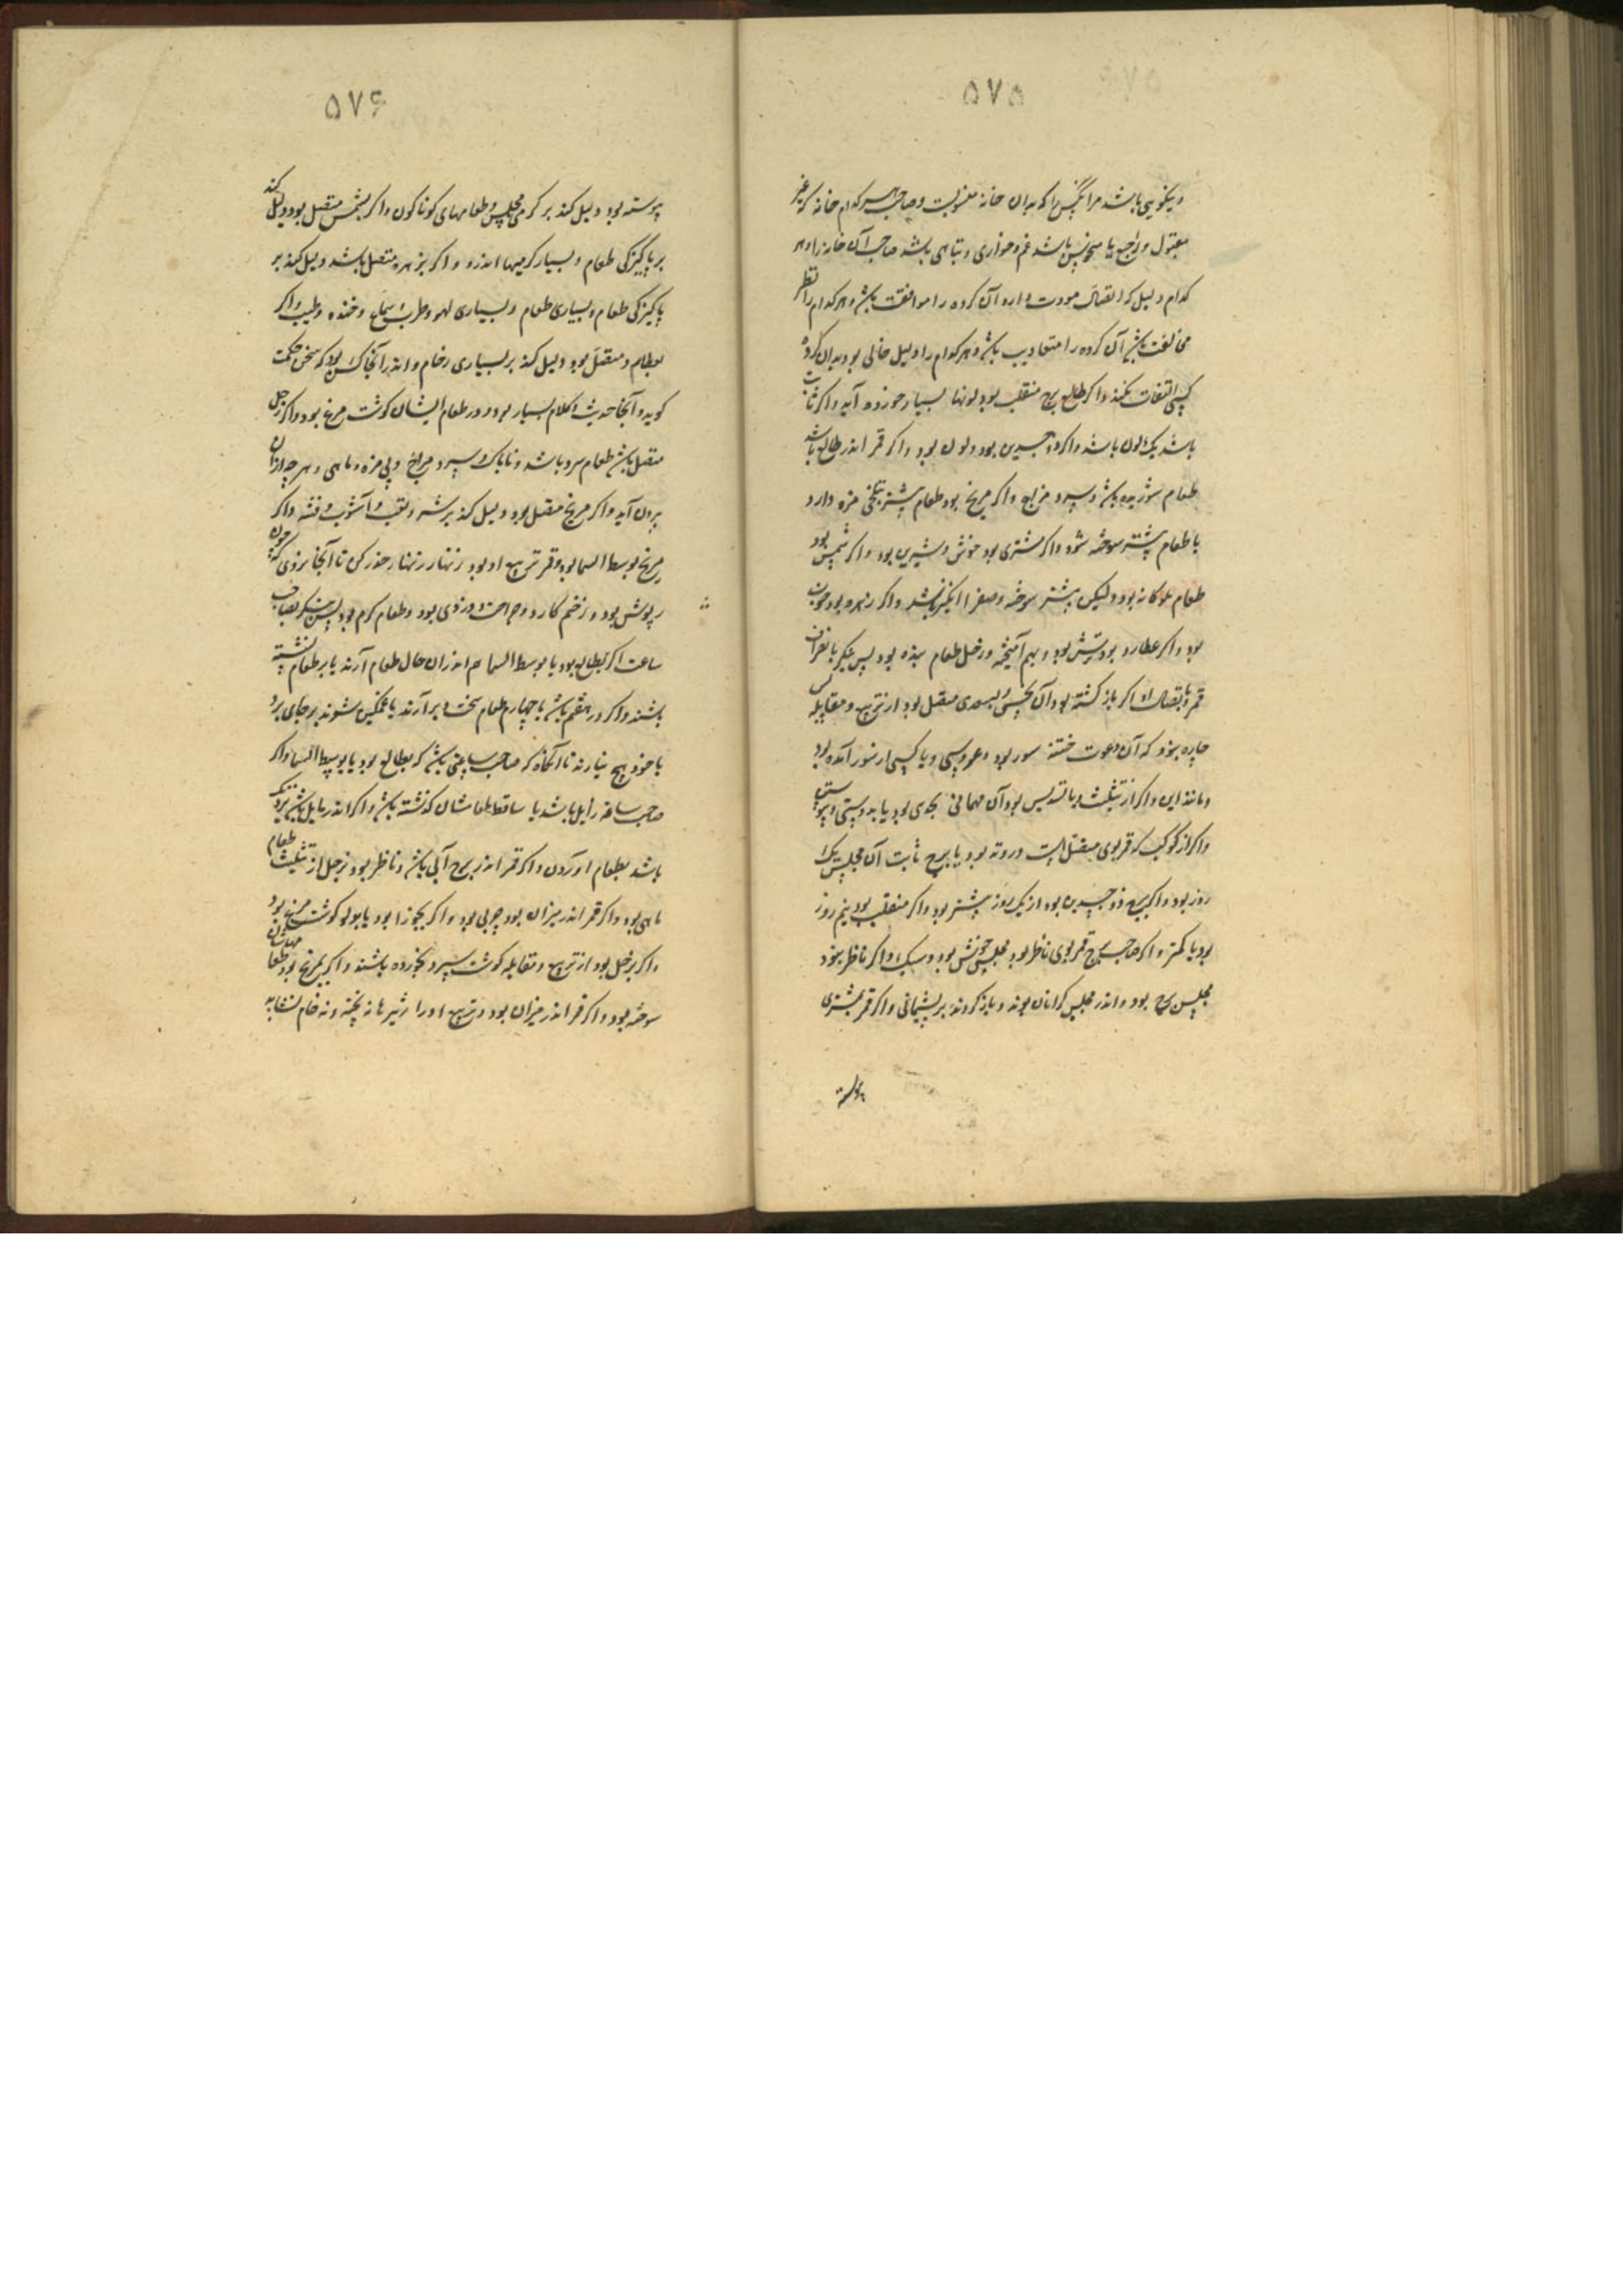 ۵۷۵
و نیکویی باشد مر انکس را که بدان خانه منسوبست و صاحب هر کدام خانه که غیر
مقبول و راجع یا منحوس باشد غم و خواری و تباهی باشد صاحب آن خانه را و هر
کدام دلیل که اتصال مودت دارد آن کروه را موافقت باشد و هر کدام را نظر
مخالفت باشد آن کروه را متعادیت باشد و هر کدام را دلیل خالی بود بدان کروه
کسی التفات نکند و اکر طالع برج منقلب بود لونها بسیار خورده آید و اکر ثابت
باشد یک لون باشد و اکر ذوجسدین بود دو لون بود و اکر قمر اندر طالع باشد
طعام شوریده باشد و سرد مزاج و اکر مریخ بود طعام بیشتر بتلخی مزه دارد
یا طعام بیشتر سوخته شود و اکر مشتری بود خوش و شیرین بود و اکر شمس بود
طعام ملوکانه بود و لیکن بیشتر سوخته و صفرا انکیز باشد و اکر زهره بود چون
بود و اکر عطارد بود ترش بود و بهم آمیخته و زحل طعام بیذه بود پس بنکر بانصراف
قمر و باتصال او اکر باز کشته بود از نحسی و بسعدی متصل بود از تربیع و مقابله
چاره نبود که آن دعوت ختنه سور بود و عروسی و یا کسی از سفر آمده بود
و مانند این و اکر از تثلیث و یا تسدیس بود آن مهمانی بجدی بود یا بدوستی و پیوستی
و اکر از کوکب که قمر بوی متصل است در وتد بود و یا ببرج ثابت آن مجلس یک
روز بود و اکر ببرج ذوجسدین بود از یک روز بیشتر بود و اکر منقلب بود نیم روز
بود یا کمتر و اکر صاحب برج قمر بوی ناظر بود مجلس خوش بود و سبک و اکر ناظر نبود
مجلس بود و اندر مجلس کرانان بوند و باز کردند بر پشیمانی و اکر قمر بمشتری
پیوسته
۵۷۶
پیوسته بود دلیل کند بر کرمی مجلس و طعامهای کوناکون و اکر بشمس متصل بود دلیل کند
بر پاکیزکی طعام و بسیار کرمیها اندرو و اکر بزهره متصل باشد دلیل کند بر
پاکیزکی طعام و بسیاری طعام و بسیاری لهو و طرب و سماع و خنده و طیب و اکر
بعطارد متصل بود دلیل کند بر بسیاری و اندر آنجا کس بود که سخن حکمت
کوید و آنجا حدیث و کلام بسیار بود و در طعام ایشان کوشت مرغ بود و اکر زحل
متصل باشد طعام سرد باشد و ناپاک و سرد مزاج و بی مزه و ماهی و هرچه از آن
بیرون آید و اکر مریخ متصل بود دلیل کند بر شر و تعب و آشوب و فتنه و اکر
مریخ بوسط السما بود و قمر تربیع او بود زنهار زنهار حذر کن تا آنجا نروی که خون
ریزش بود و زخم کارد و جراحت و دزدی بود و طعام کرم بود پس بنکر بصاحب
ساعت اکر بطالع بود یا بوسط السما هم اندر آن حال طعام آرند یا بر طعام نشسته
باشند و اکر در هفتم باشد یا چهارم طعام سخت دیر آرند یا غمکین شوند بر جای برد
یا خود هیچ نیارند تا آنکاه که صاحب ساعتی باشد که بطالع بود یا بوسط السما و اکر
صاحب ساعه زایل باشد یا ساقط طعامشان کذشته باشد و اکر اندر مایل باشد نزدیک
باشد بطعام اوردن و اکر قمر اندر برج آبی باشد و ناظر بود بزحل از تثلیث طعام
ماهی بود و اکر قمر اندر میزان بود چربی بود و اکر بجوزا بود یا بدلو کوشت مرغ بود
و اکر بزحل بود از تربیع و مقابله کوشت سرد بخورده باشند و اکر بمریخ بود طعامهاشان
سوخته بود و اکر قمر اندر میزان بود و تربیع او را نه پخته و نه خام